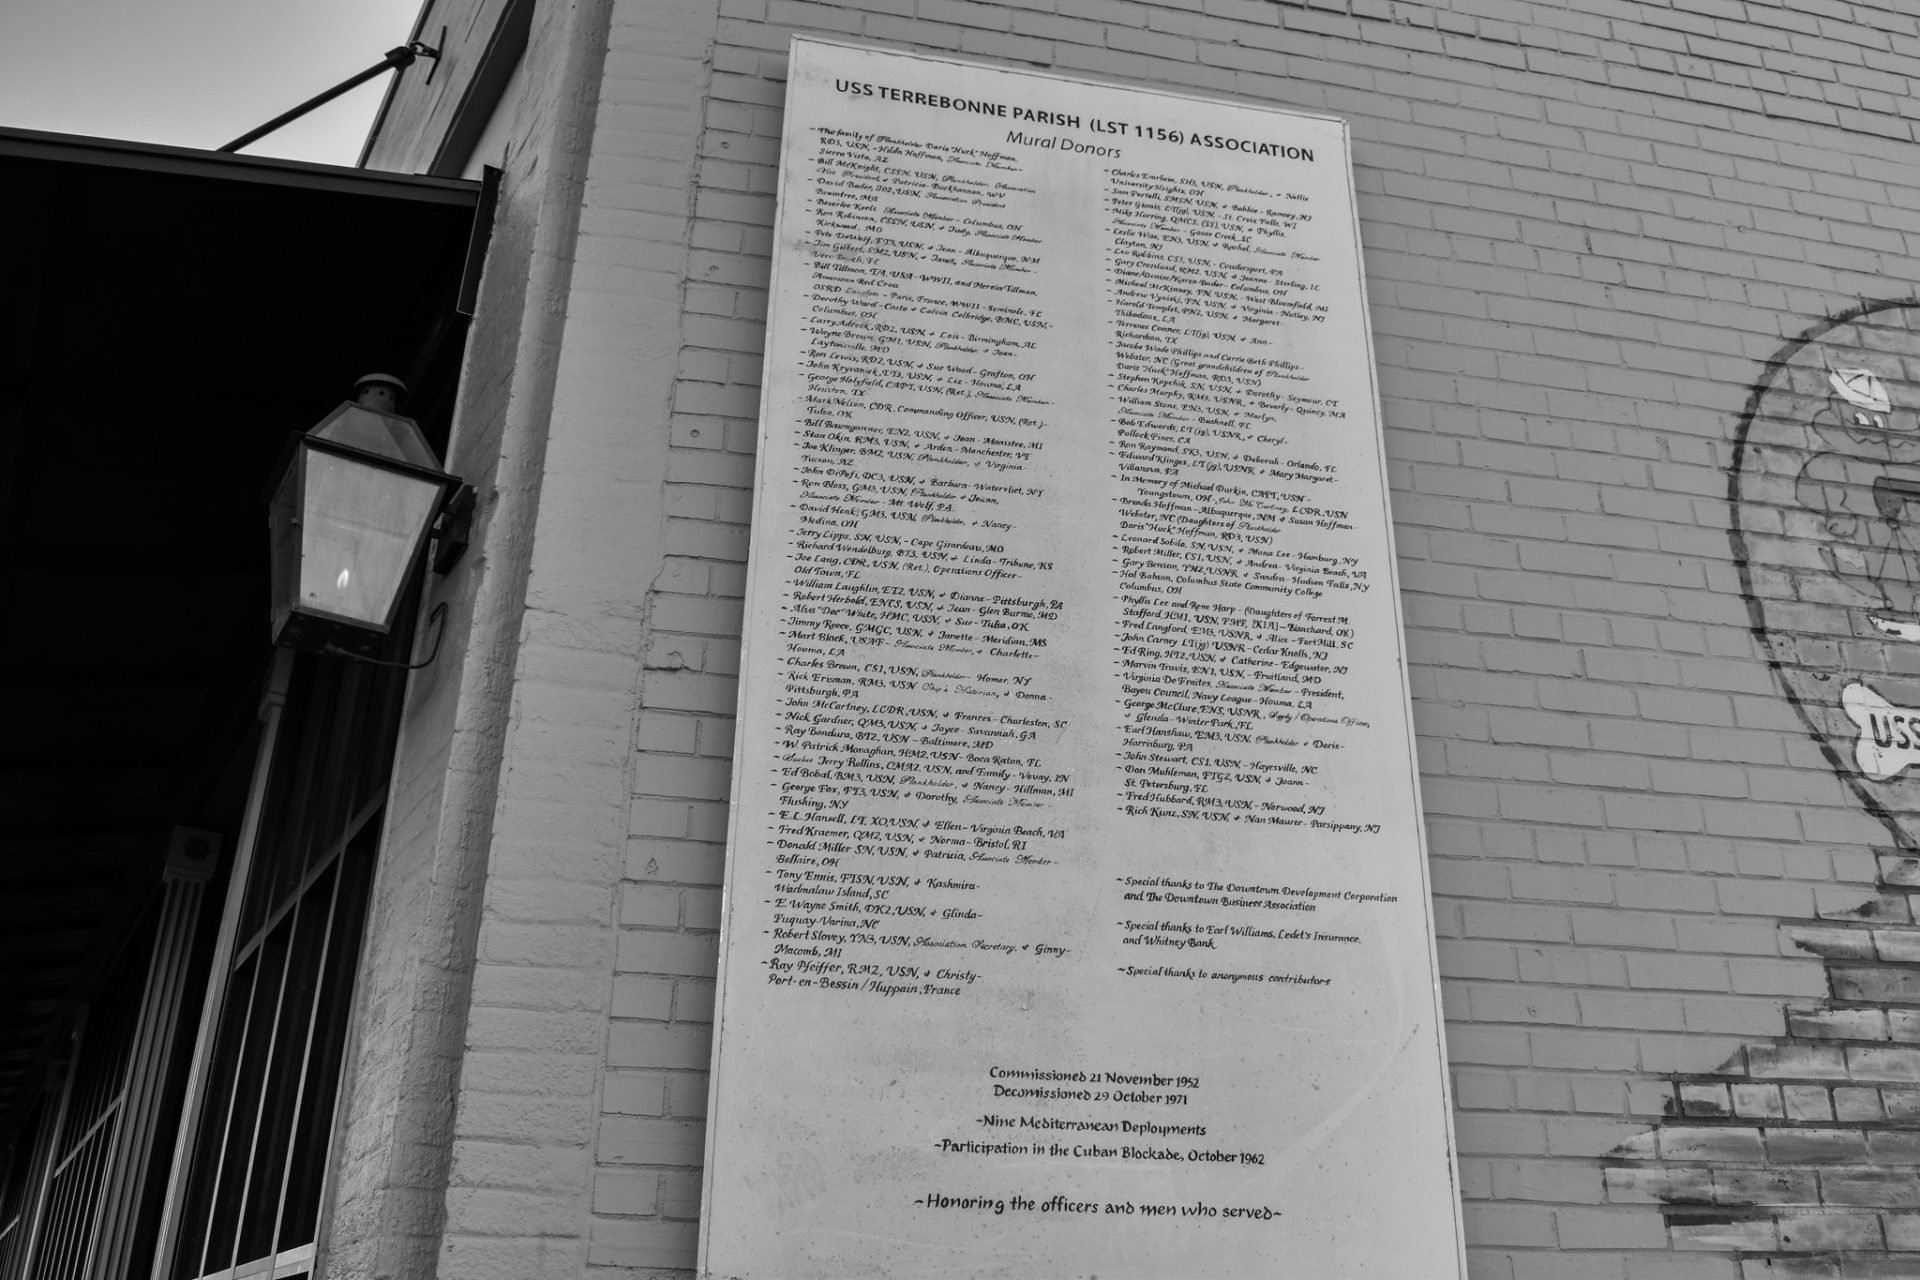 USS TERREBONNE PARISH (LST 1156) ASSOCIATION
Mural Donors
~ The family of Plankholder Daris "Huck" Hoffman,
RD3, USN, - Hilda Hoffman, Associate Member -
Sierra Vista, AZ
~ Bill McKnight, CSSN, USN, Plankholder, Association
Vice President & Patricia - Buckhannon, WV
~ David Bader, IO2, USN, Association President
Braintree, MA
~ Beverlee Keels Associate Member - Columbus, OH
~ Ron Robinson, CSSN, USN, & Judy, Associate Member
Kirkwood, MO
~ Pete DeWolf, ET3, USN, & Jean - Albuquerque, NM
~ Jim Gilbert, SM2, USN, & Janet, Associate Member -
Vero Beach, FL
~ Bill Tillman, T/4, USA - WWII, and Hercia Tillman,
American Red Cross
OSRD London - Paris, France, WWII - Seminole, FL
~ Dorothy Ward - Casto & Calvin Colbridge, BMC, USN, -
Columbus, OH
~ Larry Adcock, RD2, USN, & Lois - Birmingham, AL
~ Wayne Brown, GM1, USN, Plankholder, & Jean -
Laytonsville, MD
~ Ron Lewis, RD2, USN, & Sue Wood - Grafton, OH
~ John Kryvaniek, ET3, USN, & Liz - Houma, LA
~ George Holyfield, CAPT, USN, (Ret.), Associate Member -
Houston, TX
~ Mark Nelson, CDR, Commanding Officer, USN, (Ret.) -
Tulsa, OK
~ Bill Baumgarner, EN2, USN, & Jean - Manistee, MI
~ Stan Okin, RM3, USN, & Arden - Manchester, VT
~ Joe Klinger, BM2, USN, Plankholder, & Virginia -
Tucson, AZ
~ John DiPofi, DC3, USN, & Barbara - Watervliet, NY
~ Ron Bloss, GM3, USN, Plankholder & Joann,
Associate Member - Mt. Wolf, PA
~ David Honk, GM3, USN, Plankholder, & Nancy -
Medina, OH
~ Jerry Lipps, SN, USN, - Cape Girardeau, MO
~ Richard Wendelburg, BT3, USN, & Linda - Tribune, KS
~ Joe Lang, CDR, USN, (Ret.), Operations Officer -
Old Town, FL
~ William Laughlin, ET2, USN, & Dianne - Pittsburgh, PA
~ Robert Herbold, ENCS, USN, & Jean - Glen Burnie, MD
~ Alva "Doc" White, HMC, USN, & Sue - Tulsa, OK
~ Jimmy Reece, GMGC, USN, & Janette - Meridian, MS
~ Mart Black, USAF - Associate Member, & Charlotte -
Houma, LA
~ Charles Brown, CS1, USN, Plankholder - Homer, NY
~ Rick Erisman, RM3, USN Ship's Historian, & Donna -
Pittsburgh, PA
~ John McCartney, LCDR, USN, & Frances - Charleston, SC
~ Nick Gardner, QM3, USN, & Joyce - Savannah, GA
~ Ray Bondura, BT2, USN - Baltimore, MD
~ W. Patrick Monaghan, HM2, USN - Boca Raton, FL
~ Seabee Jerry Rollins, CMA2, USN, and Family - Vevay, IN
~ Ed Bobal, BM3, USN, Plankholder, & Nancy - Hillman, MI
~ George Fox, FT3, USN, & Dorothy, Associate Member -
Flushing, NY
~ E.L. Hansell, LT, XO, USN, & Ellen - Virginia Beach, VA
~ Fred Kraemer, QM2, USN, & Norma - Bristol, RI
~ Donald Miller SN, USN, & Patricia, Associate Member -
Bellaire, OH
~ Tony Ennis, FTSN, USN, & Kashmira -
Wadmalaw Island, SC
~ E. Wayne Smith, DK2, USN, & Glinda -
Fuquay-Varina, NC
~ Robert Slovey, YN3, USN, Association Secretary, & Ginny -
Macomb, MI
~ Ray Pfeiffer, RM2, USN, & Christy -
Port-en-Bessin / Huppain, France
~ Charles Emrhein, SH3, USN, Plankholder, & Nellie
University Heights, OH
~ Sam Portelli, SMSN, USN, & Bobbie - Ramsey, NJ
~ Peter Gionis, LT(jg), USN, - St. Croix Falls, WI
~ Mike Harring, QMCS, (SS), USN, & Phyllis,
Associate Member - Goose Creek, SC
~ Leslie Wise, EN3, USN, & Rachel, Associate Member
Clayton, NJ
~ Leo Robbins, CS3, USN, - Coudersport, PA
~ Gary Crossland, RM2, USN, & Jeanne - Sterling, IL
~ Diane/Denise/Karen Bader - Columbus, OH
~ Micheal McKinney, FN, USN, - West Bloomfield, MI
~ Andrew Vyniski, FN, USN, & Virginia - Nutley, NJ
~ Harold Templet, PN2, USN, & Margaret -
Thibodaux, LA
~ Terrence Conner, LT(jg), USN, & Ann -
Richardson, TX
~ Jacobe Wade Phillips and Carrie Beth Phillips -
Webster, NC (Great grandchildren of Plankholder
Daris "Huck" Hoffman, RD3, USN)
~ Stephen Kopchik, SN, USN, & Dorothy - Seymour, CT
~ Charles Murphy, RM3, USNR, & Beverly - Quincy, MA
~ William Stone, EN3, USN, & Marlyn,
Associate Member - Bushnell, FL
~ Bob Edwards, LT (jg), USNR, & Cheryl -
Pollock Pines, CA
~ Ron Raymond, SK3, USN, & Deborah - Orlando, FL
~ Edward Klinges, LT (jg), USNR & Mary Margaret -
Villanova, PA
~ In Memory of Michael Durkin, CAPT, USN -
Youngstown, OH - John McCartney, LCDR, USN
~ Brenda Hoffman - Albuquerque, NM & Susan Hoffman -
Webster, NC (Daughters of Plankholder
Daris "Huck" Hoffman, RD3, USN)
~ Leonard Sobilo, SN, USN, & Mona Lee - Hamburg, NY
~ Robert Miller, CS1, USN, & Andrea - Virginia Beach, VA
~ Gary Benson, YN2, USNR & Sandra - Hudson Falls, NY
~ Hal Babson, Columbus State Community College
Columbus, OH
~ Phyllis Lee and Rene Harp - (Daughters of Forrest M.
Stafford, HM1, USN, FMF, [KIA] - Blanchard, OK)
~ Fred Langford, EM3, USNR, & Alice - Fort Mill, SC
~ John Carney LT(jg) USNR - Cedar Knolls, NJ
~ Ed Ring, HT2, USN, & Catherine - Edgewater, NJ
~ Marvin Travis, EN1, USN, - Fruitland, MD
~ Virginia De Fraites, Associate Member - President,
Bayou Council, Navy League - Houma, LA
~ George McClure, ENS, USNR, Supply / Operations Officer,
& Glenda - Winter Park, FL
~ Earl Hanshaw, EM3, USN, Plankholder & Doris -
Harrisburg, PA
~ John Stewart, CS1, USN, - Hayesville, NC
~ Don Muhleman, FTG2, USN, & Joann -
St. Petersburg, FL
~ Fred Hubbard, RM3, USN, - Norwood, NJ
~ Rich Kunz, SN, USN, & Nan Maurer - Parsippany, NJ
~ Special thanks to The Downtown Development Corporation
and The Downtown Business Association
~ Special thanks to Earl Williams, Ledet's Insurance,
and Whitney Bank
~ Special thanks to anonymous contributors
Commissioned 21 November 1952
Decomissioned 29 October 1971
~Nine Mediterranean Deployments
~Participation in the Cuban Blockade, October 1962
~Honoring the officers and men who served~
USS